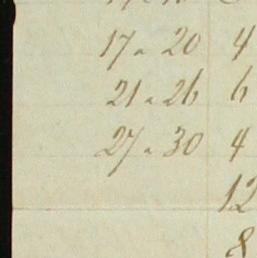 17 - 20 4
21 - 26 6
27 - 30 4
12
8